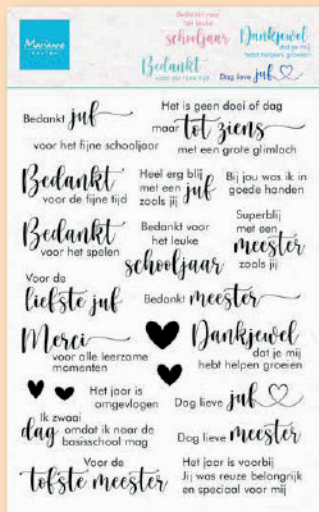 Bedankt voor
het leuke
schooljaar
Dankjewel
dat je mij
hebt helpen groeien
Marianne
DESIGN
Bedankt
voor de fijne tijd
Dag lieve juf
Bedankt juf
voor het fijne schooljaar
Het is geen doei of dag
maar tot ziens
met een grote glimlach
Bedankt
voor de fijne tijd
Heel erg blij
met een juf
zoals jij
Bij jou was ik in
goede handen
Bedankt
voor het spelen
Bedankt voor
het leuke
schooljaar
Superblij
met een
meester
zoals jij
Voor de
liefste juf
Bedankt meester
Merci
voor alle leerzame
momenten
Dankjewel
dat je mij
hebt helpen groeien
Het jaar is
omgevlogen
Dag lieve juf
Ik zwaai
dag omdat ik naar de
basisschool mag
Dag lieve meester
Voor de
tofste meester
Het jaar is voorbij
Jij was reuze belangrijk
en speciaal voor mij